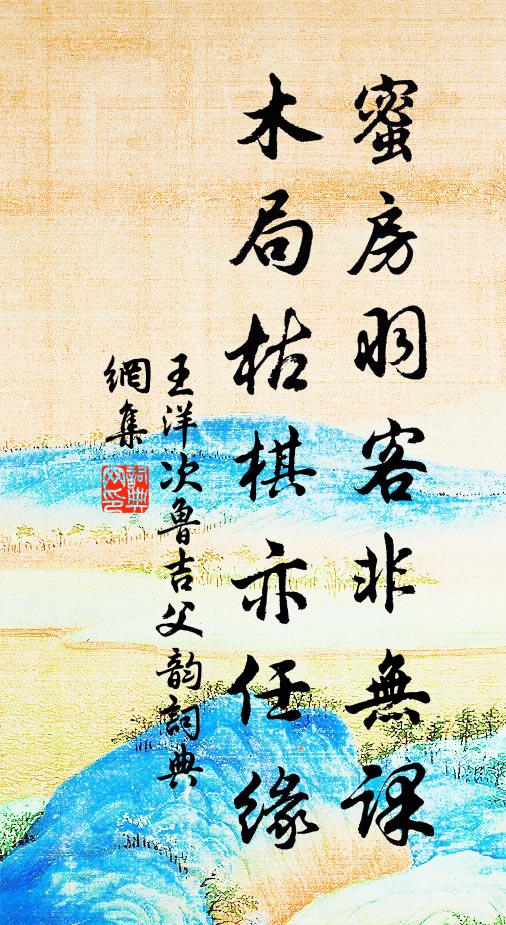 蜜房羽客非無課
木局枯棋亦任緣
王洋次魯吉父韵詞典
網集